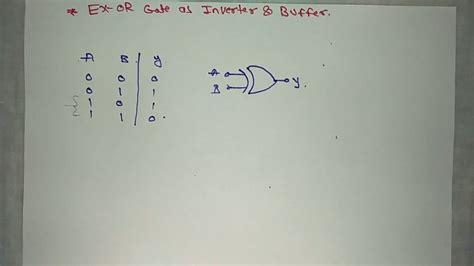 * EX-OR Gate as Inverter & Buffer.
A B Y
0 0 0
0 1 1
1 0 1
1 1 0
A
B
Y.